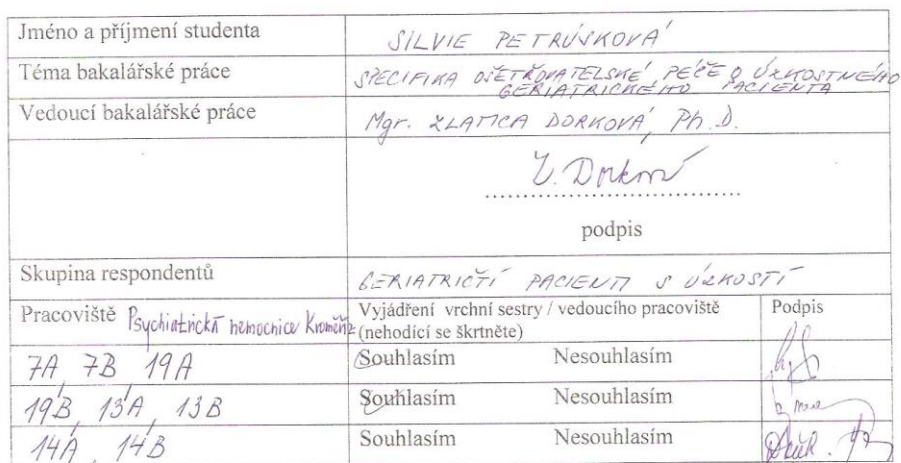 Jméno a příjmení studenta SILVIE PETRŮSKOVÁ
Téma bakalářské práce SPECIFIKA OŠETŘOVATELSKÉ PÉČE O ÚZKOSTNÉHO
GERIATRICKÉHO PACIENTA
Vedoucí bakalářské práce Mgr. ZLATICA DORKOVÁ, Ph.D.
Z. Dorková
podpis
Skupina respondentů GERIATRIČTÍ PACIENTI S ÚZKOSTÍ
Pracoviště Psychiatrická nemocnice Kroměříž Vyjádření vrchní sestry / vedoucího pracoviště Podpis
(nehodící se škrtněte)
7A, 7B, 19A Souhlasím Nesouhlasím
19B, 13A, 13B Souhlasím Nesouhlasím
14A, 14B Souhlasím Nesouhlasím